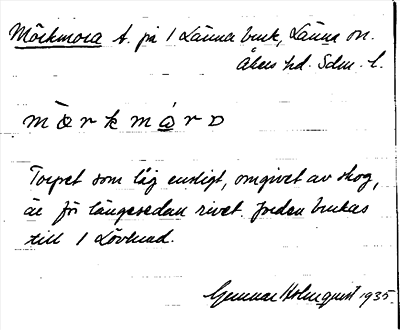 Mörkmora t. på 1 Länna bruk, Länna sn.
Åkers hd. Sdm. l.
mö̀rkmórɒ
Torpet som låg ensligt, omgivet av skog,
är för längesedan rivet. Jorden brukas
till 1 Lövlund.
Gunnar Holmquist 1935.